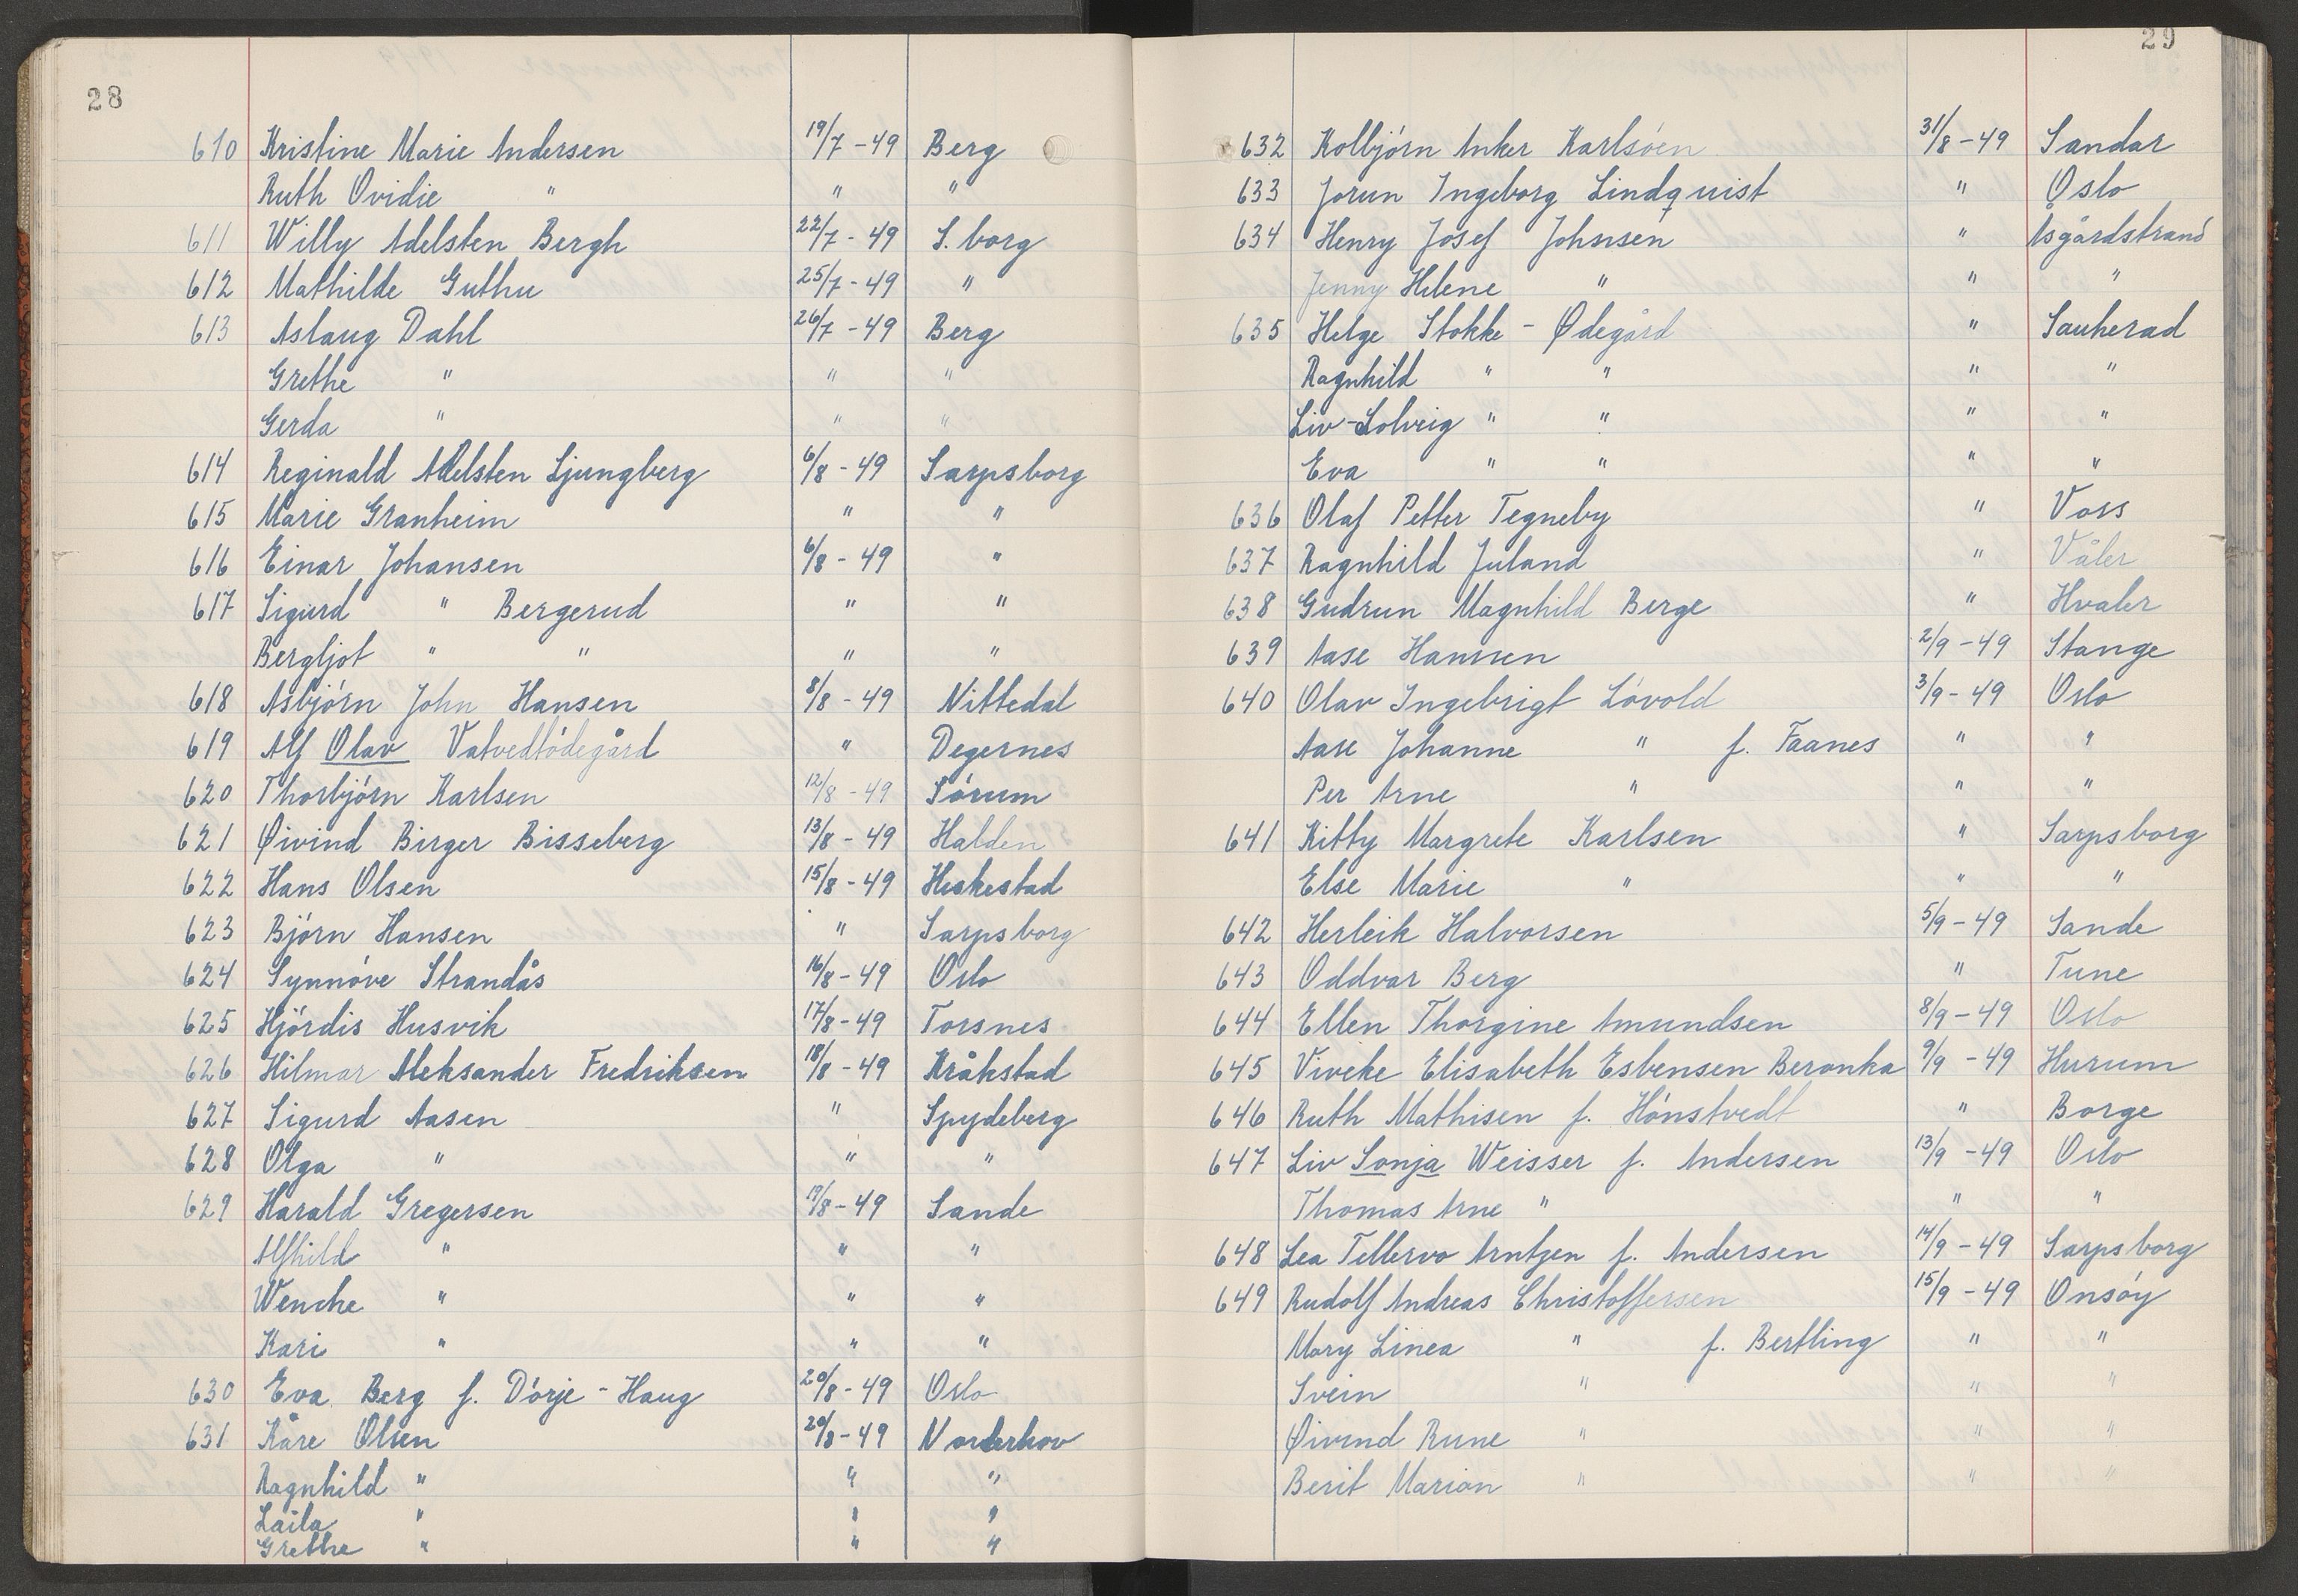 28
610 Kristine Marie Andersen 19/7-49 Berg
Ruth Ovidie " " "
611 Willy Adelsten Bergh 22/7-49 S.borg
612 Mathilde Guthu 25/7-49 "
613 Aslaug Dahl 26/7-49 Berg
Grethe " " "
Gerda " " "
614 Reginald Adelsten Ljungberg 6/8-49 Sarpsborg
615 Marie Granheim " "
616 Einar Johansen 6/8-49 "
617 Sigurd " Bergerud " "
Bergljot " " " "
618 Asbjörn John Hansen 8/8-49 Nittedal
619 Alf Olav Vatvedtödegård " Degernes
620 Thorbjörn Karlsen 12/8-49 Sörum
621 Øivind Birger Bisseberg 13/8-49 Halden
622 Hans Olsen 15/8-49 Heskestad
623 Björn Hansen " Sarpsborg
624 Synnöve Strandås 16/8-49 Oslo
625 Hjördis Husvik 17/8-49 Torsnes
626 Hilmar Aleksander Fredriksen 18/8-49 Kråkstad
627 Sigurd Aasen " Spydeberg
628 Olga " " "
629 Harald Gregersen 19/8-49 Sande
Alfhild " " "
Wenche " " "
Kari " " "
630 Eva Berg f. Dörje-Haug 20/8-49 Oslo
631 Kåre Olsen 20/8-49 Norderhov
Ragnhild " " "
Laila " " "
Grethe " " "
29
632 Kolbjörn Anker Karlsöen 31/8-49 Sandar
633 Jorun Ingeborg Lindquist " Oslo
634 Henry Josef Johnsen " Åsgårdstrand
Jenny Helene " " "
635 Helge Stokke-Ødegård " Sauherad
Ragnhild " " " "
Liv-Solveig " " " "
Eva " " " "
636 Olaf Petter Tegneby " Voss
637 Ragnhild Juland " Våler
638 Gudrun Magnhild Berge " Hvaler
639 Aase Hansen 2/9-49 Stange
640 Olav Ingebrigt Lövold 3/9-49 Oslo
Aase Johanne " f. Faanes " "
Per Arne " " "
641 Kitty Margrete Karlsen " Sarpsborg
Else Marie " " "
642 Herleik Halvorsen 5/9-49 Sande
643 Oddvar Berg " Tune
644 Ellen Thorgine Amundsen 8/9-49 Oslo
645 Viveke Elisabeth Esbensen Beronka 9/9-49 Hurum
646 Ruth Mathisen f. Hönstvedt " Borge
647 Liv Sonja Weisser f. Andersen 13/9-49 Oslo
Thomas Arne " " "
648 Lea Tellervo Arntzen f. Andersen 14/9-49 Sarpsborg
649 Rudolf Andreas Christoffersen 15/9-49 Onsöy
Mary Linea " f. Bertling " "
Svein " " "
Øivind Rune " " "
Berit Marion " " "